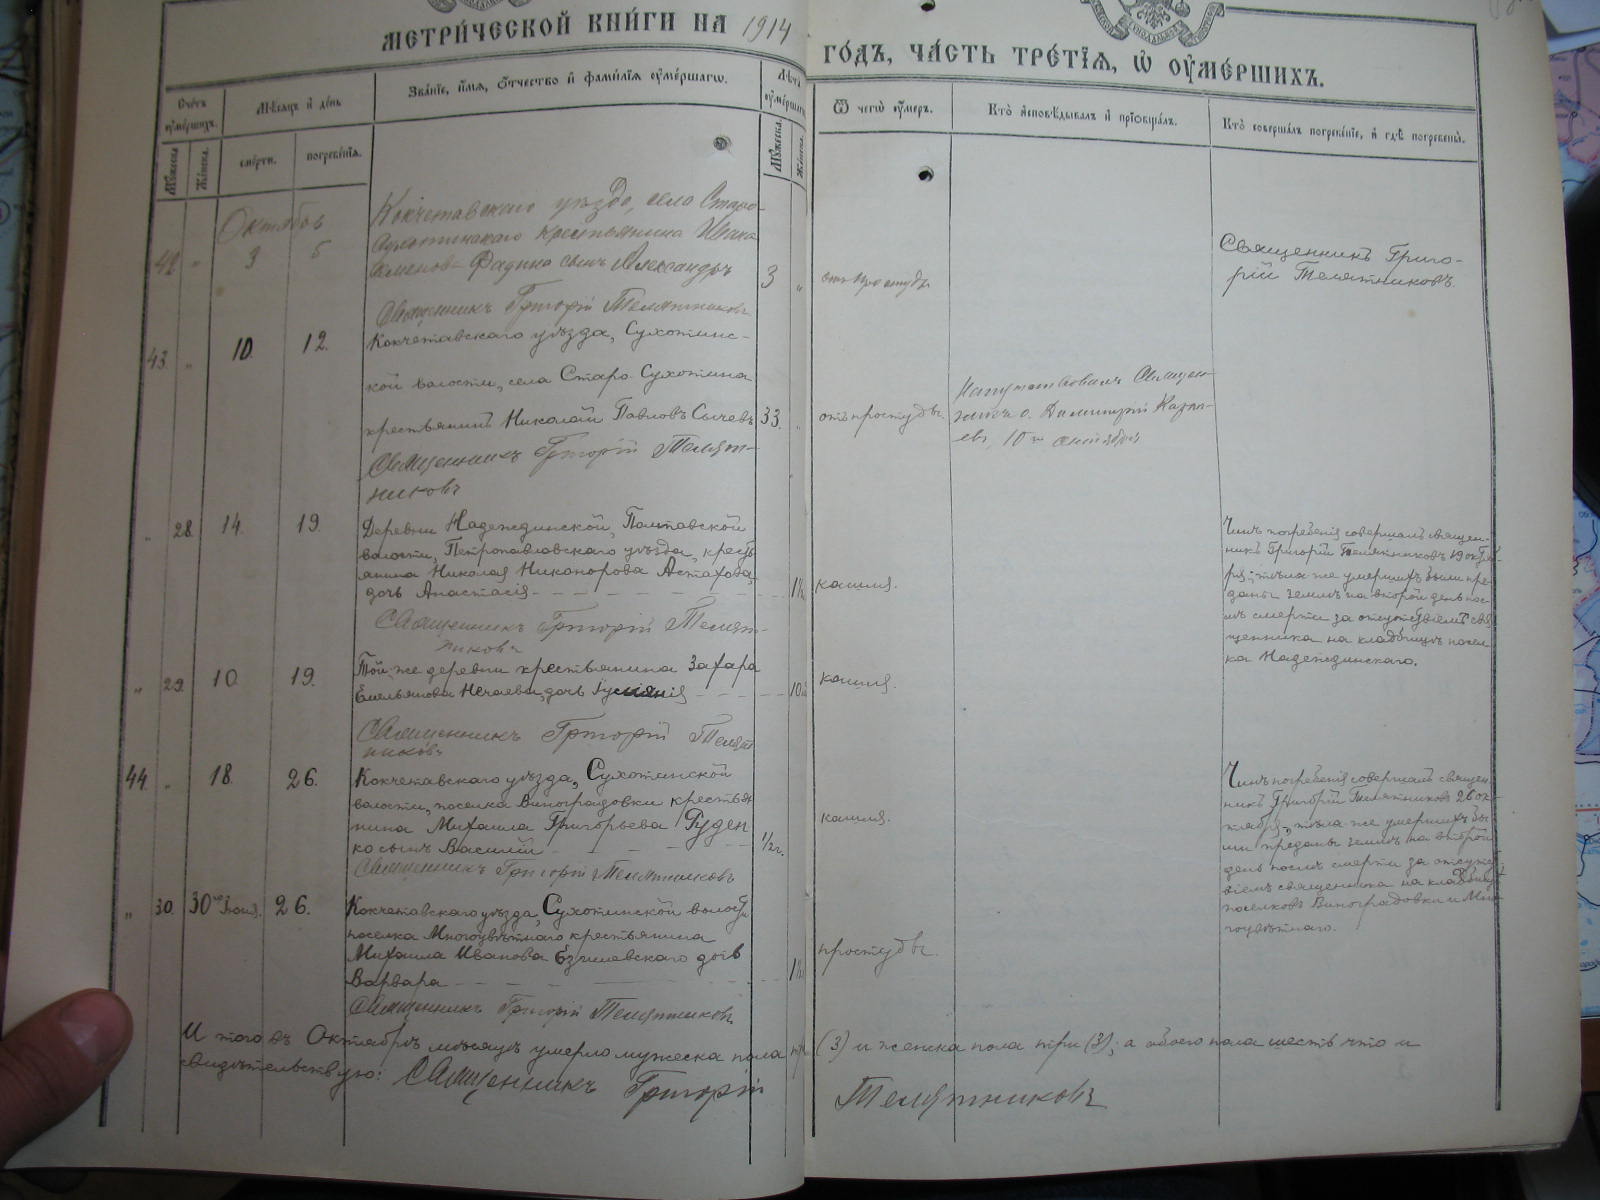 МЕТРИ́ЧЕСКОЙ КНИ́ГИ НА 1914
ГО́ДЪ, ЧА́СТЬ ТРЕ́ТІѦ, Ѡ ОУМЕ́РШИХЪ.
Счетъ оумершихъ.
Мужеска
Женска
Мѣсяцъ и день
смерти.
погребенія.
Званіе, имя, отчество и фамилія оумершагѡ.
Лѣта оумершагѡ
Мужеска.
Женска.
Ѿ чегѡ оумеръ.
Кто исповѣдывалъ и пріобщалъ.
Кто совершалъ погребеніе, и гдѣ погребены.
Октябрь
42 " 3 5
Кокчетавскаго уѣзда, села Старо-
Сухотинскаго крестьянина Ивана
Семенова Фадина сынъ Александръ
3 "
отъ простуды
Священникъ Григо-
рій Телятниковъ.
Священникъ Григорій Телятниковъ
43. " 10. 12.
Кокчетавскаго уѣзда, Сухотинс-
кой волости, села Старо-Сухотина
крестьянинъ Николай Павловъ Сычевъ
33. "
отъ простуды.
Напутствовалъ Священ-
никъ о. Димитрій
10го октября
Священникъ Григорій Телят-
никовъ
" 28. 14. 19.
Деревни Надеждинской, Полтавской
волости, Петропавловскаго уѣзда, кресть
янина Николая Никонорова Астахова,
дочь Анастасія - - - -
кашля.
Чинъ погребенія совершалъ священ-
никъ Григорій Телятниковъ 19 октяб
ря; тѣла же умершихъ были пре-
даны землѣ на второй день пос-
лѣ смерти за отсутствіемъ свя
щенника на кладбищѣ посел
ка Надеждинскаго.
Священникъ Григорій Телят-
никовъ
" 29. 10 19.
Той-же деревни крестьянина Захара
Емельянова Нечаева, дочь
кашля.
Священникъ Григорій Телят
никовъ
44. " 18. 26.
Кокчетавскаго уѣзда, Сухотинской
волости, поселка Виноградовки крестья
нина Михаила Григорьева Руден
ко сынъ Василій
1/2 г.
кашля.
Чинъ погребенія совершалъ священ
никъ Григорій Телятниковъ 26 ок-
тября, тѣла же умершихъ бы
ли преданы землѣ на второй
день послѣ смерти за отсутст
віемъ священника на кладбищѣ
поселковъ Виноградовки и Мно
гоцвѣтнаго.
Священникъ Григорій Телятниковъ
" 30. 30го Іюня. 26.
Кокчетавскаго уѣзда, Сухотинской волости
поселка Многоцвѣтнаго крестьянина
Михаила Иванова дочь
Варвара - - - -
простуды.
Священникъ Григорій Телятниковъ
Итого въ Октябрѣ мѣсяцѣ умерло мужеска пола три (3) и женска пола три (3); а обоего пола шесть что и
свидѣтельствую: Священникъ Григорій Телятниковъ